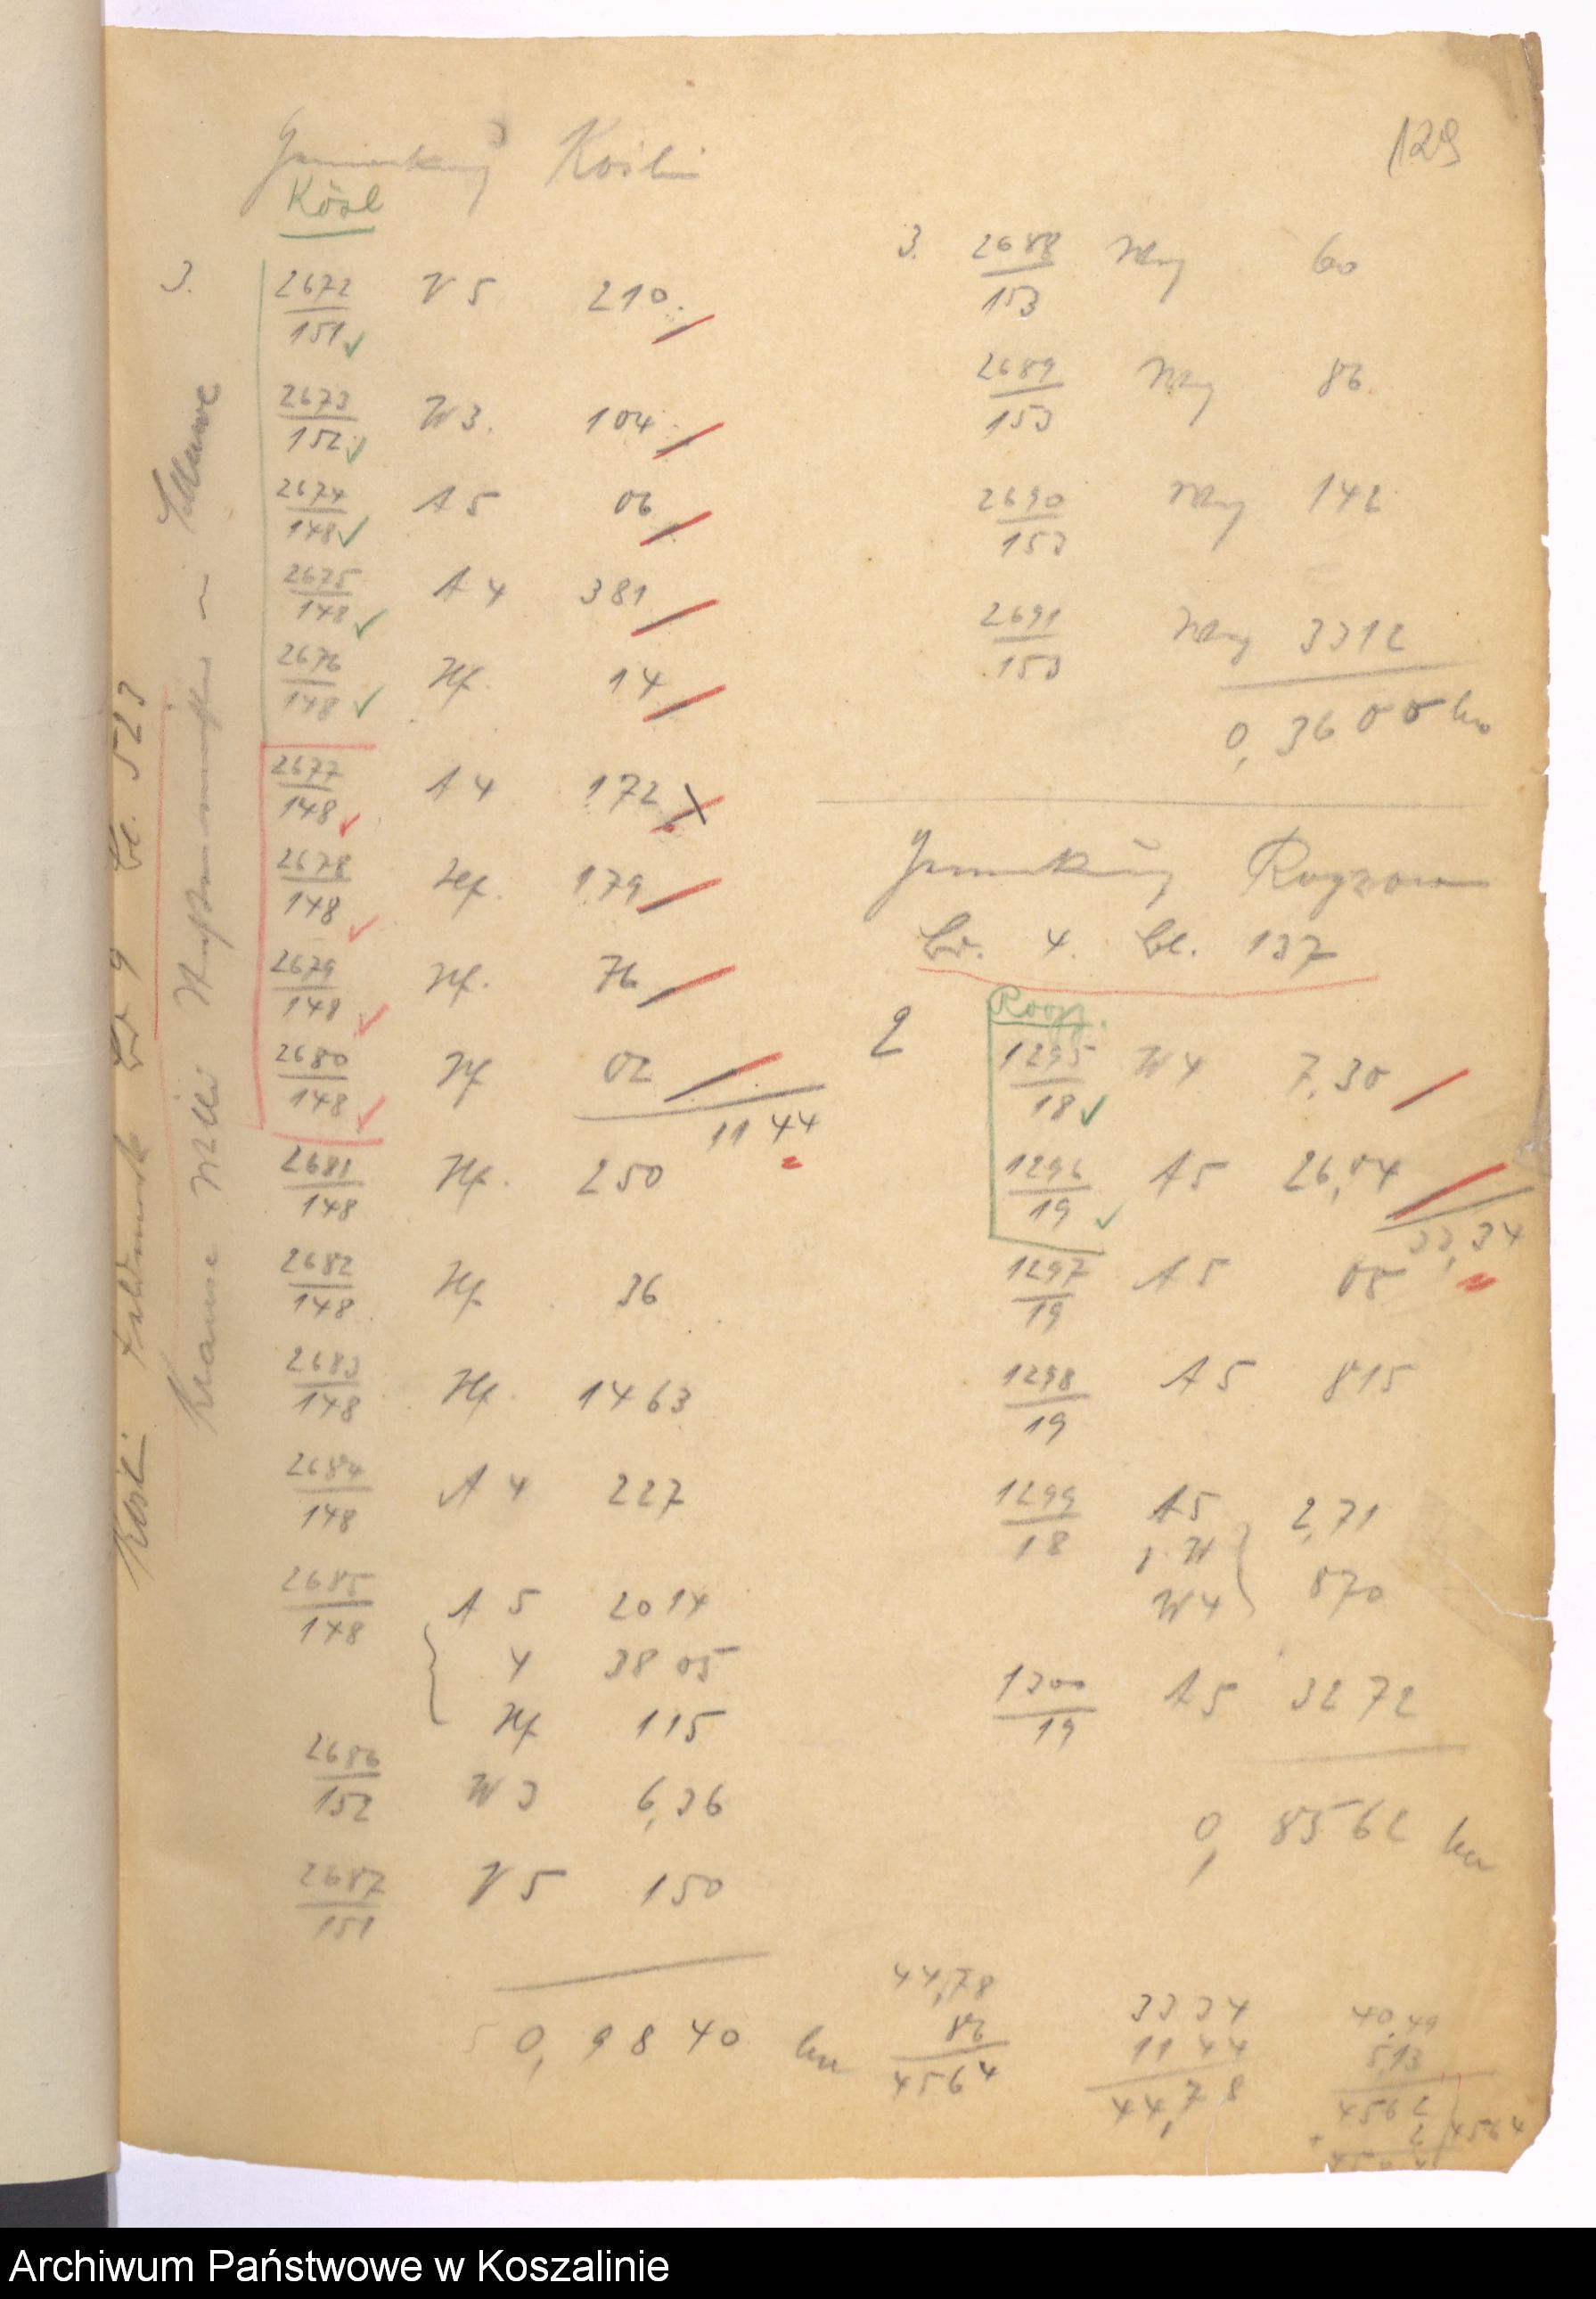 129
Gemarkung Köslin
Kösl
3.
2672/151 V 5 210
2673/152 W 3. 104
2674/148 A 5 06
2675/148 A 4 381
2676/148 Hf. 14
2677/148 A 4 172
2678/148 Hf. 179
2679/148 Hf. 76
2680/148 Hf 02
1144
2681/148 Hf. 250
2682/148 Hf. 36
2683/148 Hf. 1463
2684/148 A 4 227
2685/148 A 5 2014
4 3805
Hf 115
2686/152 W 3 6,36
2687/151 V 5 150
0,9840 ha
3. 2688/153 Weg 60
2689/153 Weg 86
2690/153 Weg 142
2691/153 Weg 3312
0,3600 ha
Gemarkung Rogzow
Bd. 4. Bl. 137
Rogz.
2
1295/18 W 4 7,30
1296/19 A 5 26,04
33,34
1297/19 A 5 05
1298/19 A 5 815
1299/18 A 5 2,71
W 4 870
1300/19 A 5 3272
0,8562 ha
44,78
86
4564
3334
1144
44,78
40,49
5,13
4562
2
4564
Köslin Bd 9 Bl. 523
Krause Willi
Archiwum Państwowe w Koszalinie